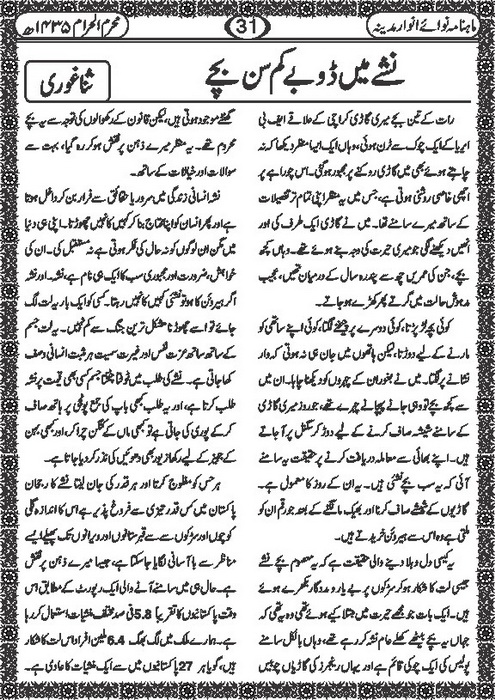 ماہنامہ نوائے انوار مدینہ
31
محرم الحرام ۱۴۳۵ھ
نشے میں ڈوبے کم سن بچے
ثنا غوری
رات کے تین بجے میری گاڑی کراچی کے علاقے ایف بی
ایریا کے ایک چوک سے ٹرن ہوئی، وہاں ایک ایسا منظر دیکھا کہ نہ
چاہتے ہوئے بھی میں گاڑی روکنے پر مجبور ہوگئی۔ اس چوراہے پر
اچھی خاصی روشنی ہوتی ہے، جس میں یہ منظر اپنی تمام تر تفصیلات
کے ساتھ میرے سامنے تھا۔ میں نے گاڑی ایک طرف کی اور
انھیں دیکھنے لگی جو میری حیرت کی وجہ بنے ہوئے تھے۔ وہاں کچھ
بچے، جن کی عمریں چھ سے پندرہ سال کے درمیان تھیں، عجیب
مدہوش حالت میں گرتے پھر کھڑے ہو جاتے۔
کوئی بچہ لڑ پڑتا، کوئی دوسرے پر چیخنے لگتا، کوئی اپنے ساتھی کو
مارنے کے لیے دوڑتا، لیکن ہاتھوں میں جان ہی نہ ہوتی کہ وار
نشانے پر لگتا۔ میں نے بغور ان کے چہروں کو دیکھنا چاہا۔ ان میں
سے کچھ بچے تو وہی جانے پہچانے چہرے تھے، جو روز میری گاڑی
کے سامنے شیشہ صاف کرنے کے لیے دوڑ کر سگنل پر آ جاتے
ہیں۔ اپنے بھائی سے معاملہ دریافت کرنے پر حقیقت یہ سامنے
آئی کہ یہ سب بچے نشئی ہیں۔ یہ ان کے روز کا معمول ہے۔
گاڑیوں کے شیشے صاف کرنا اور بھیک مانگنے کے بعد جو رقم ان کو
ملتی ہے وہ اس سے ہیروئن خریدتے ہیں۔
یہ کیسی دل دہلا دینے والی حقیقت ہے کہ یہ معصوم بچے نشے
جیسی لت کا شکار ہو کر سڑکوں پر بے یار و مددگار بکھرے ہوئے
ہیں۔ ایک بات جو مجھے حیرت میں مبتلا کیے ہوئے تھی وہ یہ تھی کہ
جہاں یہ بچے بیٹھے کھلے عام نشہ کر رہے تھے، وہاں بالکل سامنے
پولیس کی ایک چوکی قائم ہے اور یہاں رینجرز کی گاڑیاں چوبیس
گھنٹے موجود ہوتی ہیں، لیکن قانون کے رکھوالوں کی توجہ سے یہ بچے
محروم تھے۔ یہ منظر میرے ذہن پر نقش ہو کر رہ گیا، بہت سے
سوالات اور خیالات کے ساتھ۔
نشہ انسانی زندگی میں سرور یا حقائق سے فرار بن کر داخل ہوتا
ہے اور پھر انسان کو اپنا محتاج بنا کر کہیں کا نہیں چھوڑتا۔ اپنی ہی دنیا
میں مگن ان لوگوں کو نہ حال کی فکر ہوتی ہے نہ مستقبل کی۔ ان کی
خواہش، ضرورت اور مجبوری سب کا ایک ہی نام ہے، نشہ۔ اور نشہ
اگر ہیروئن کا ہو تو نشئی کہیں کا نہیں رہتا۔ کسی کو ایک بار یہ لت لگ
جائے تو اسے چھوڑنا مشکل ترین جنگ سے کم نہیں۔ یہ لت جسم
کے ساتھ ساتھ عزت نفس اور غیرت سمیت ہر مثبت انسانی وصف
کھا جاتی ہے۔ نشے کی طلب میں ٹوٹتا چٹختا جسم کسی بھی قیمت پر نشہ
طلب کرتا ہے، اور یہ طلب کبھی باپ کی جمع پونجی پر ہاتھ صاف
کر کے پوری کی جاتی ہے تو کبھی ماں کے کنگن چرا کر، اور کبھی بہن
کے جہیز کے لیے رکھا زیور بھی دھوئیں کی نذر کر دیا جاتا ہے۔
ہر حس کو مفلوج کرتا اور ہر قدر کی جان لیتا نشے کا رجحان
پاکستان میں کس قدر تیزی سے فروغ پذیر ہے اس کا اندازہ گلی
کوچوں اور سڑکوں سے قبرستانوں اور ویرانوں تک پھیلے ایسے
مناظر سے باآسانی لگایا جا سکتا ہے، جیسا میرے ذہن پر نقش
ہے۔ حال ہی میں سامنے آنے والی ایک رپورٹ کے مطابق اس
وقت پاکستانیوں کا تقریباً 5.8 فی صد مختلف منشیات استعمال کر رہا
ہے۔ ہمارے ملک میں لگ بھگ 6.4 ملین افراد اس لت کا شکار
ہیں، گویا ہر 27 پاکستانیوں میں سے ایک منشیات کا عادی ہے۔